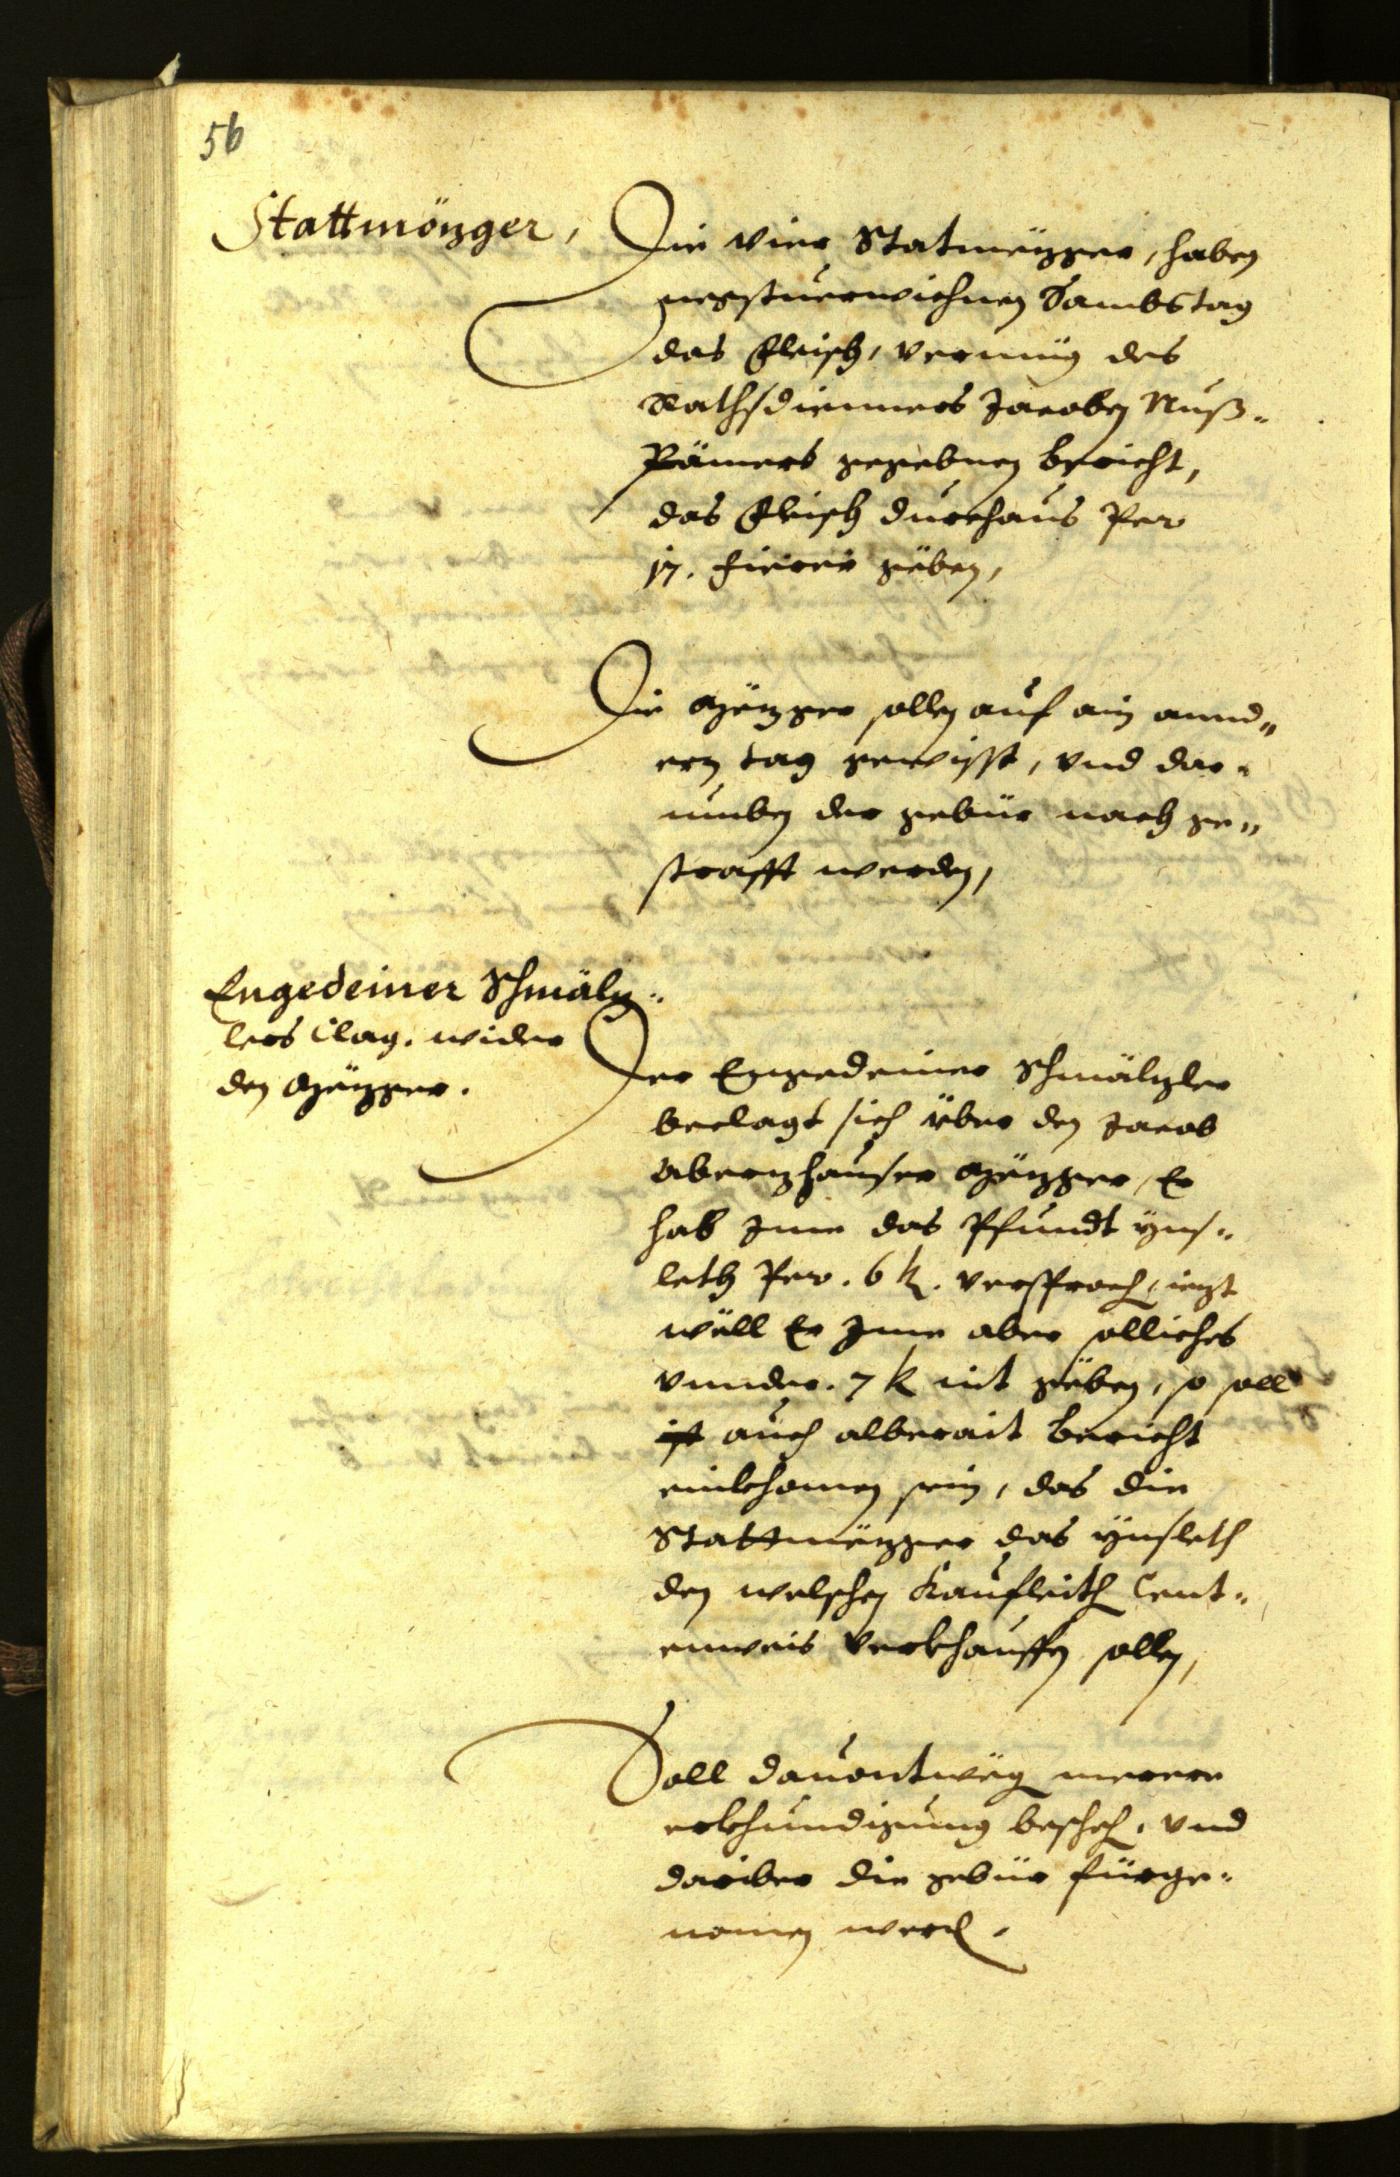 56
Stattmözger,
Die vier Statmëzger, haben
negstuerwichnen Sambstag
das Fleisch, vermüg des
Rathsdienners Jacoben Nuß-
Pämers gegebnen bericht,
das Fleisch durchaus Per
17. fierer gëben,
Die Mëzger sollen auf ain annd„
ern tag gewisst, vnd dar-
umben der gebür nach ge„
strafft werden,
Engedeiner Schmälz-
lers Clag. wider
den Mëzger.
Der Engedeiner Schmälzler
beclagt sich über den Jacob
Abernhauser Mëzger, Er
hab Ime das Pfundt ÿns-
leth Per. 6 k. versproch, iezt
wëll Er Ime aber solliches
vnnder. 7 k nit gëben, so soll
ist auch alberait bericht
einkhomen sein, das die
Stattmëzger das ÿnsleth
den welschen Kaufleith Cent-
enweis verkhauffen sollen,
Soll dauontwëg merere
erkhundigung bescheh, vnd
dariber die gebür fürge-
nomen werd.